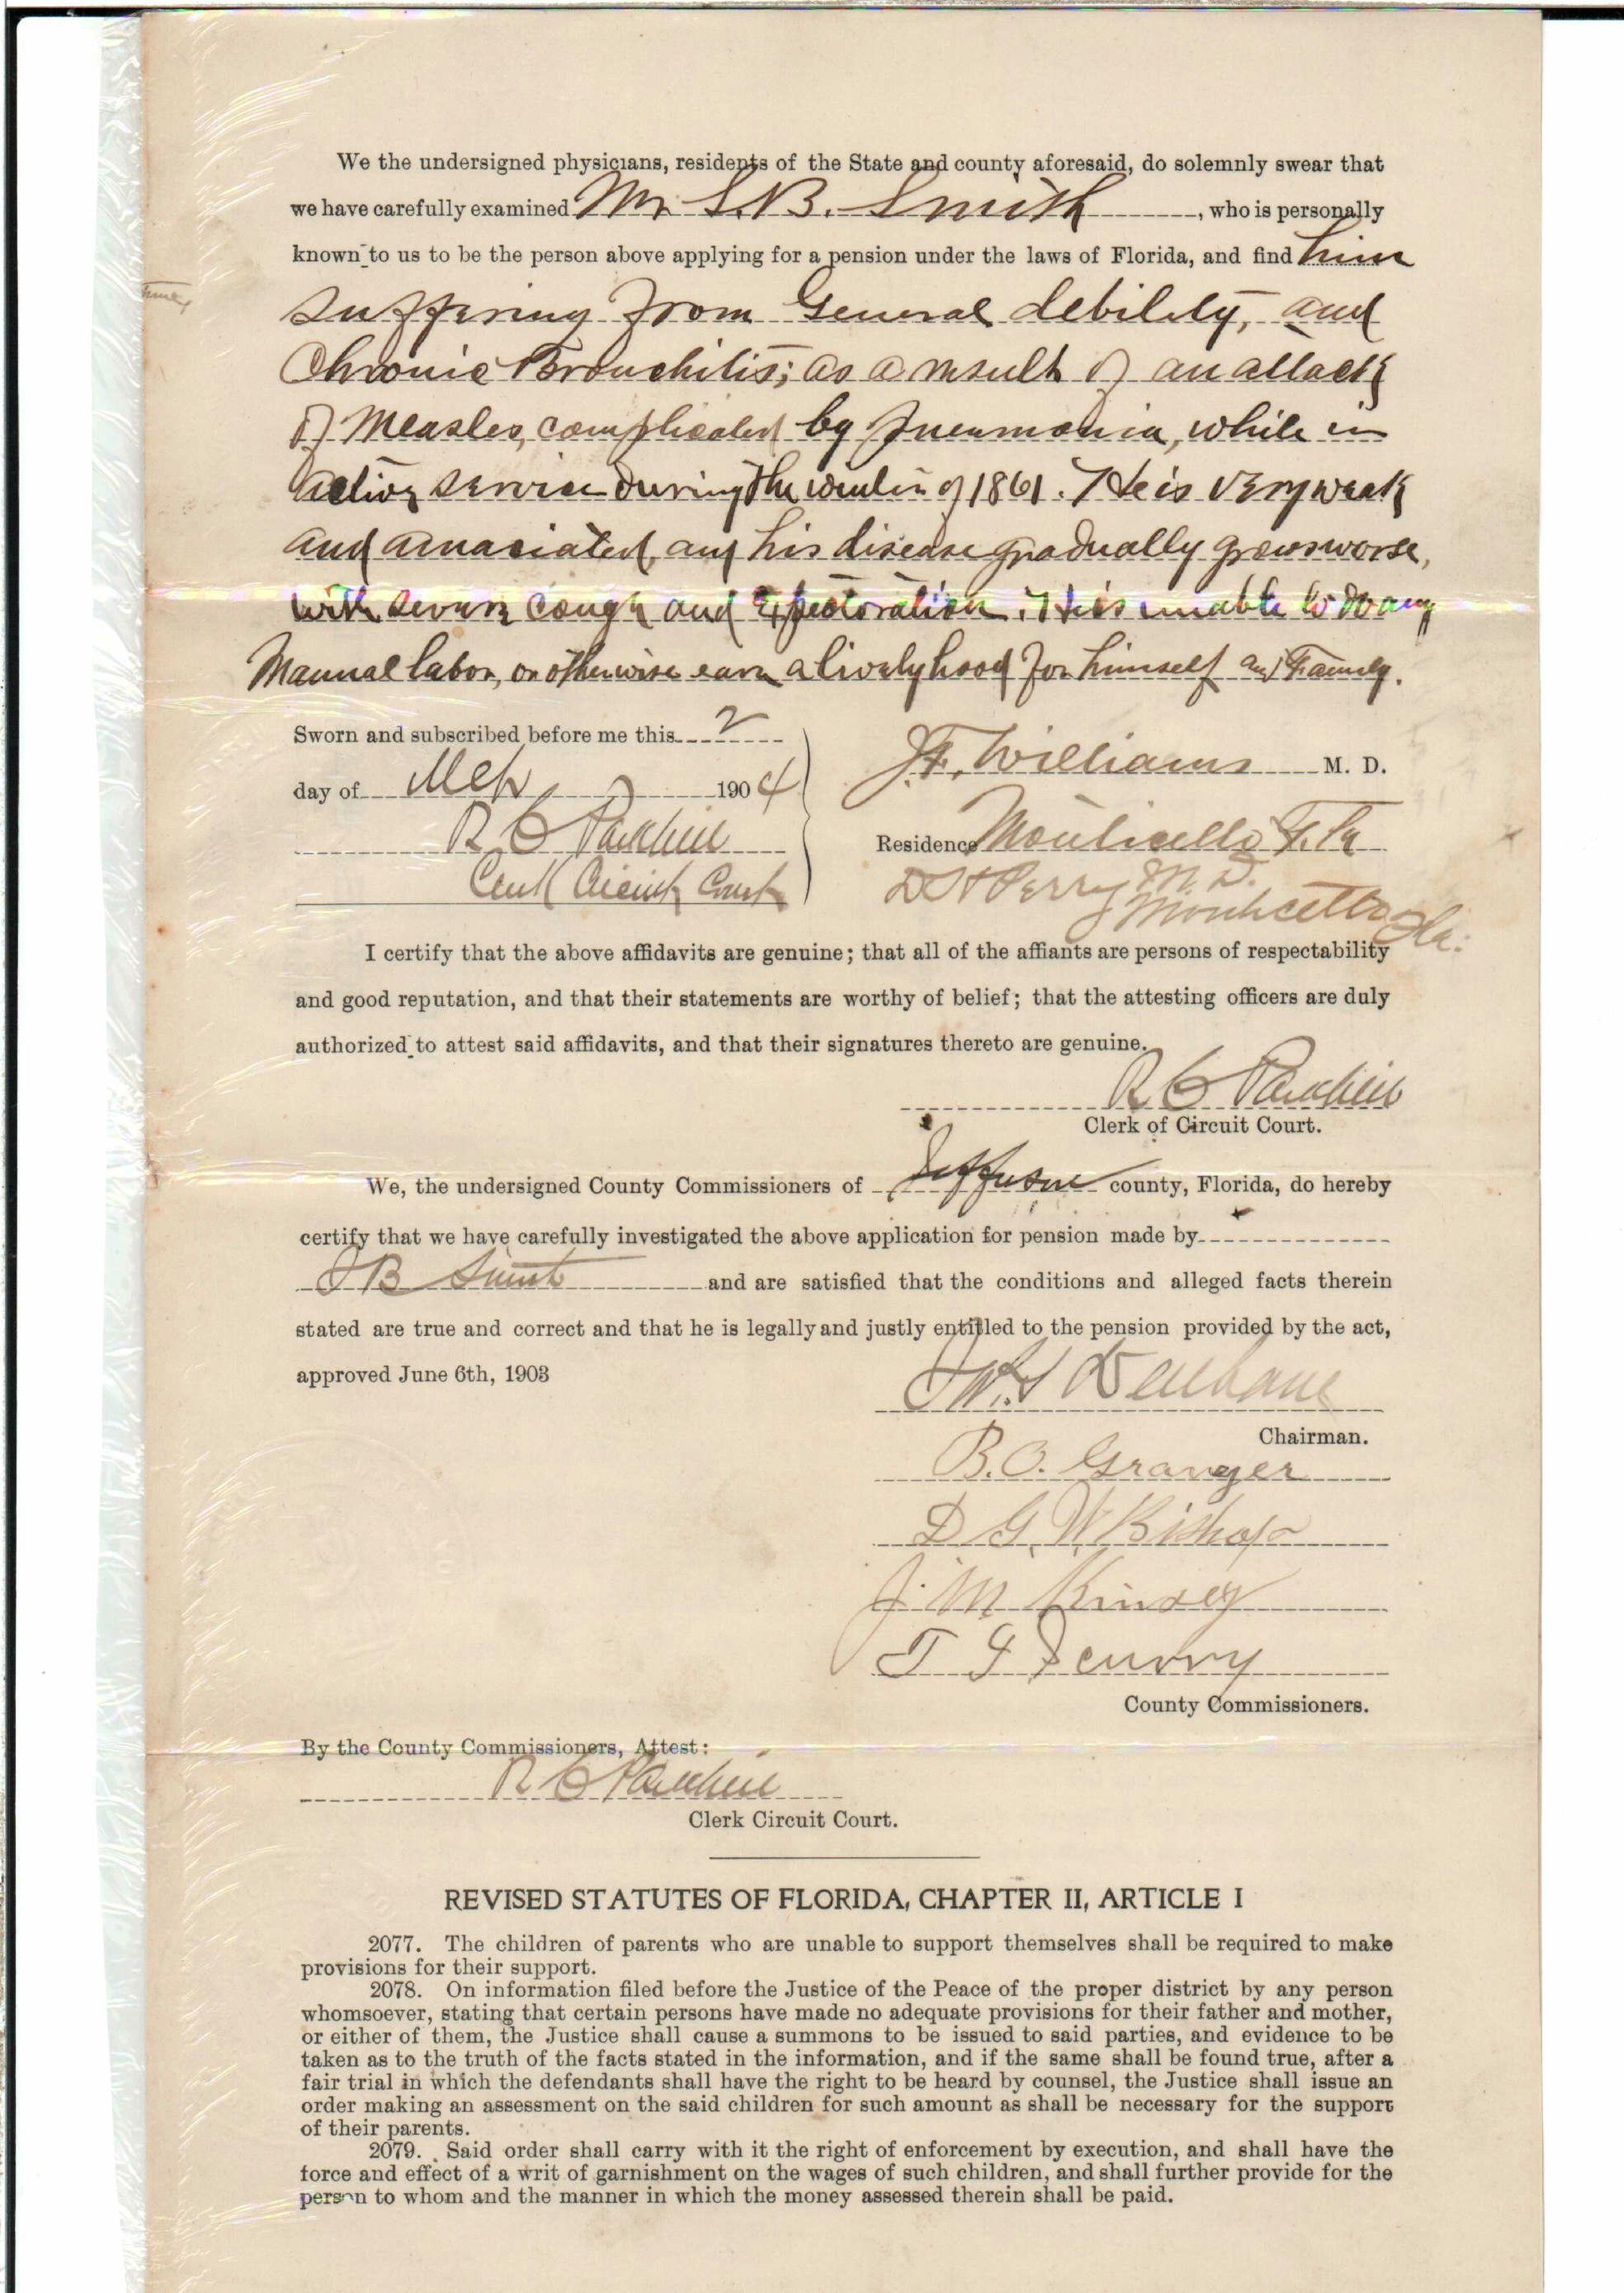 We the undersigned physicians, residents of the State and county aforesaid, do solemnly swear that
we have carefully examined Mr S.B. Smith, who is personally
known to us to be the person above applying for a pension under the laws of Florida, and find him
suffering from General debility, and
Chronic Bronchitis; as a result of an attack
of Measles, complicated by pneumonia, while in
active service during the winter of 1861. He is very weak
and amaciated, and his disease gradually grows worse,
with severe cough and Expectoration. He is unable to do any
Manual labor, or otherwise earn a livelyhood for himself and Family.
Sworn and subscribed before me this 2
day of Mch 1904
R C Parkhill
Clerk Circuit Court
J.F. Williams M. D.
Residence Monticello Fla
M.D.
Monticello Fla.
I certify that the above affidavits are genuine; that all of the affiants are persons of respectability
and good reputation, and that their statements are worthy of belief; that the attesting officers are duly
authorized to attest said affidavits, and that their signatures thereto are genuine.
R C Parkhill
Clerk of Circuit Court.
We, the undersigned County Commissioners of Jefferson county, Florida, do hereby
certify that we have carefully investigated the above application for pension made by
S B Smith and are satisfied that the conditions and alleged facts therein
stated are true and correct and that he is legally and justly entitled to the pension provided by the act,
approved June 6th, 1903
Chairman.
B.O. Granger
D G. W. Bishop
J. M. Kinsey
T G Scurry
County Commissioners.
By the County Commissioners, Attest:
R C Parkhill
Clerk Circuit Court.
REVISED STATUTES OF FLORIDA, CHAPTER II, ARTICLE I
2077. The children of parents who are unable to support themselves shall be required to make
provisions for their support.
2078. On information filed before the Justice of the Peace of the proper district by any person
whomsoever, stating that certain persons have made no adequate provisions for their father and mother,
or either of them, the Justice shall cause a summons to be issued to said parties, and evidence to be
taken as to the truth of the facts stated in the information, and if the same shall be found true, after a
fair trial in which the defendants shall have the right to be heard by counsel, the Justice shall issue an
order making an assessment on the said children for such amount as shall be necessary for the support
of their parents.
2079. Said order shall carry with it the right of enforcement by execution, and shall have the
force and effect of a writ of garnishment on the wages of such children, and shall further provide for the
person to whom and the manner in which the money assessed therein shall be paid.